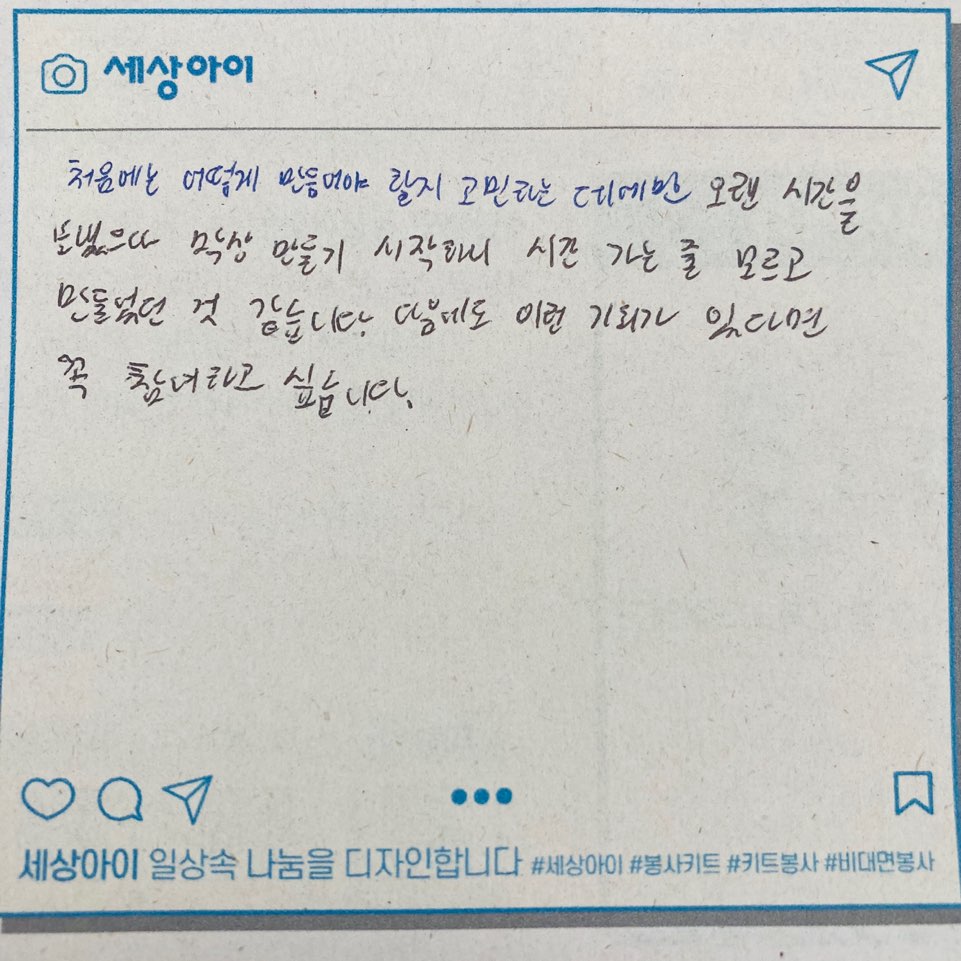 세상아이
처음에는 어떻게 만들어야 할지 고민하는 데에만 오랜 시간을
보냈으나 막상 만들기 시작하니 시간 가는 줄 모르고
만들었던 것 같습니다. 다음에도 이런 기회가 있다면
꼭 참여하고 싶습니다.
세상아이 일상속 나눔을 디자인합니다 #세상아이 #봉사키트 #키트봉사 #비대면봉사